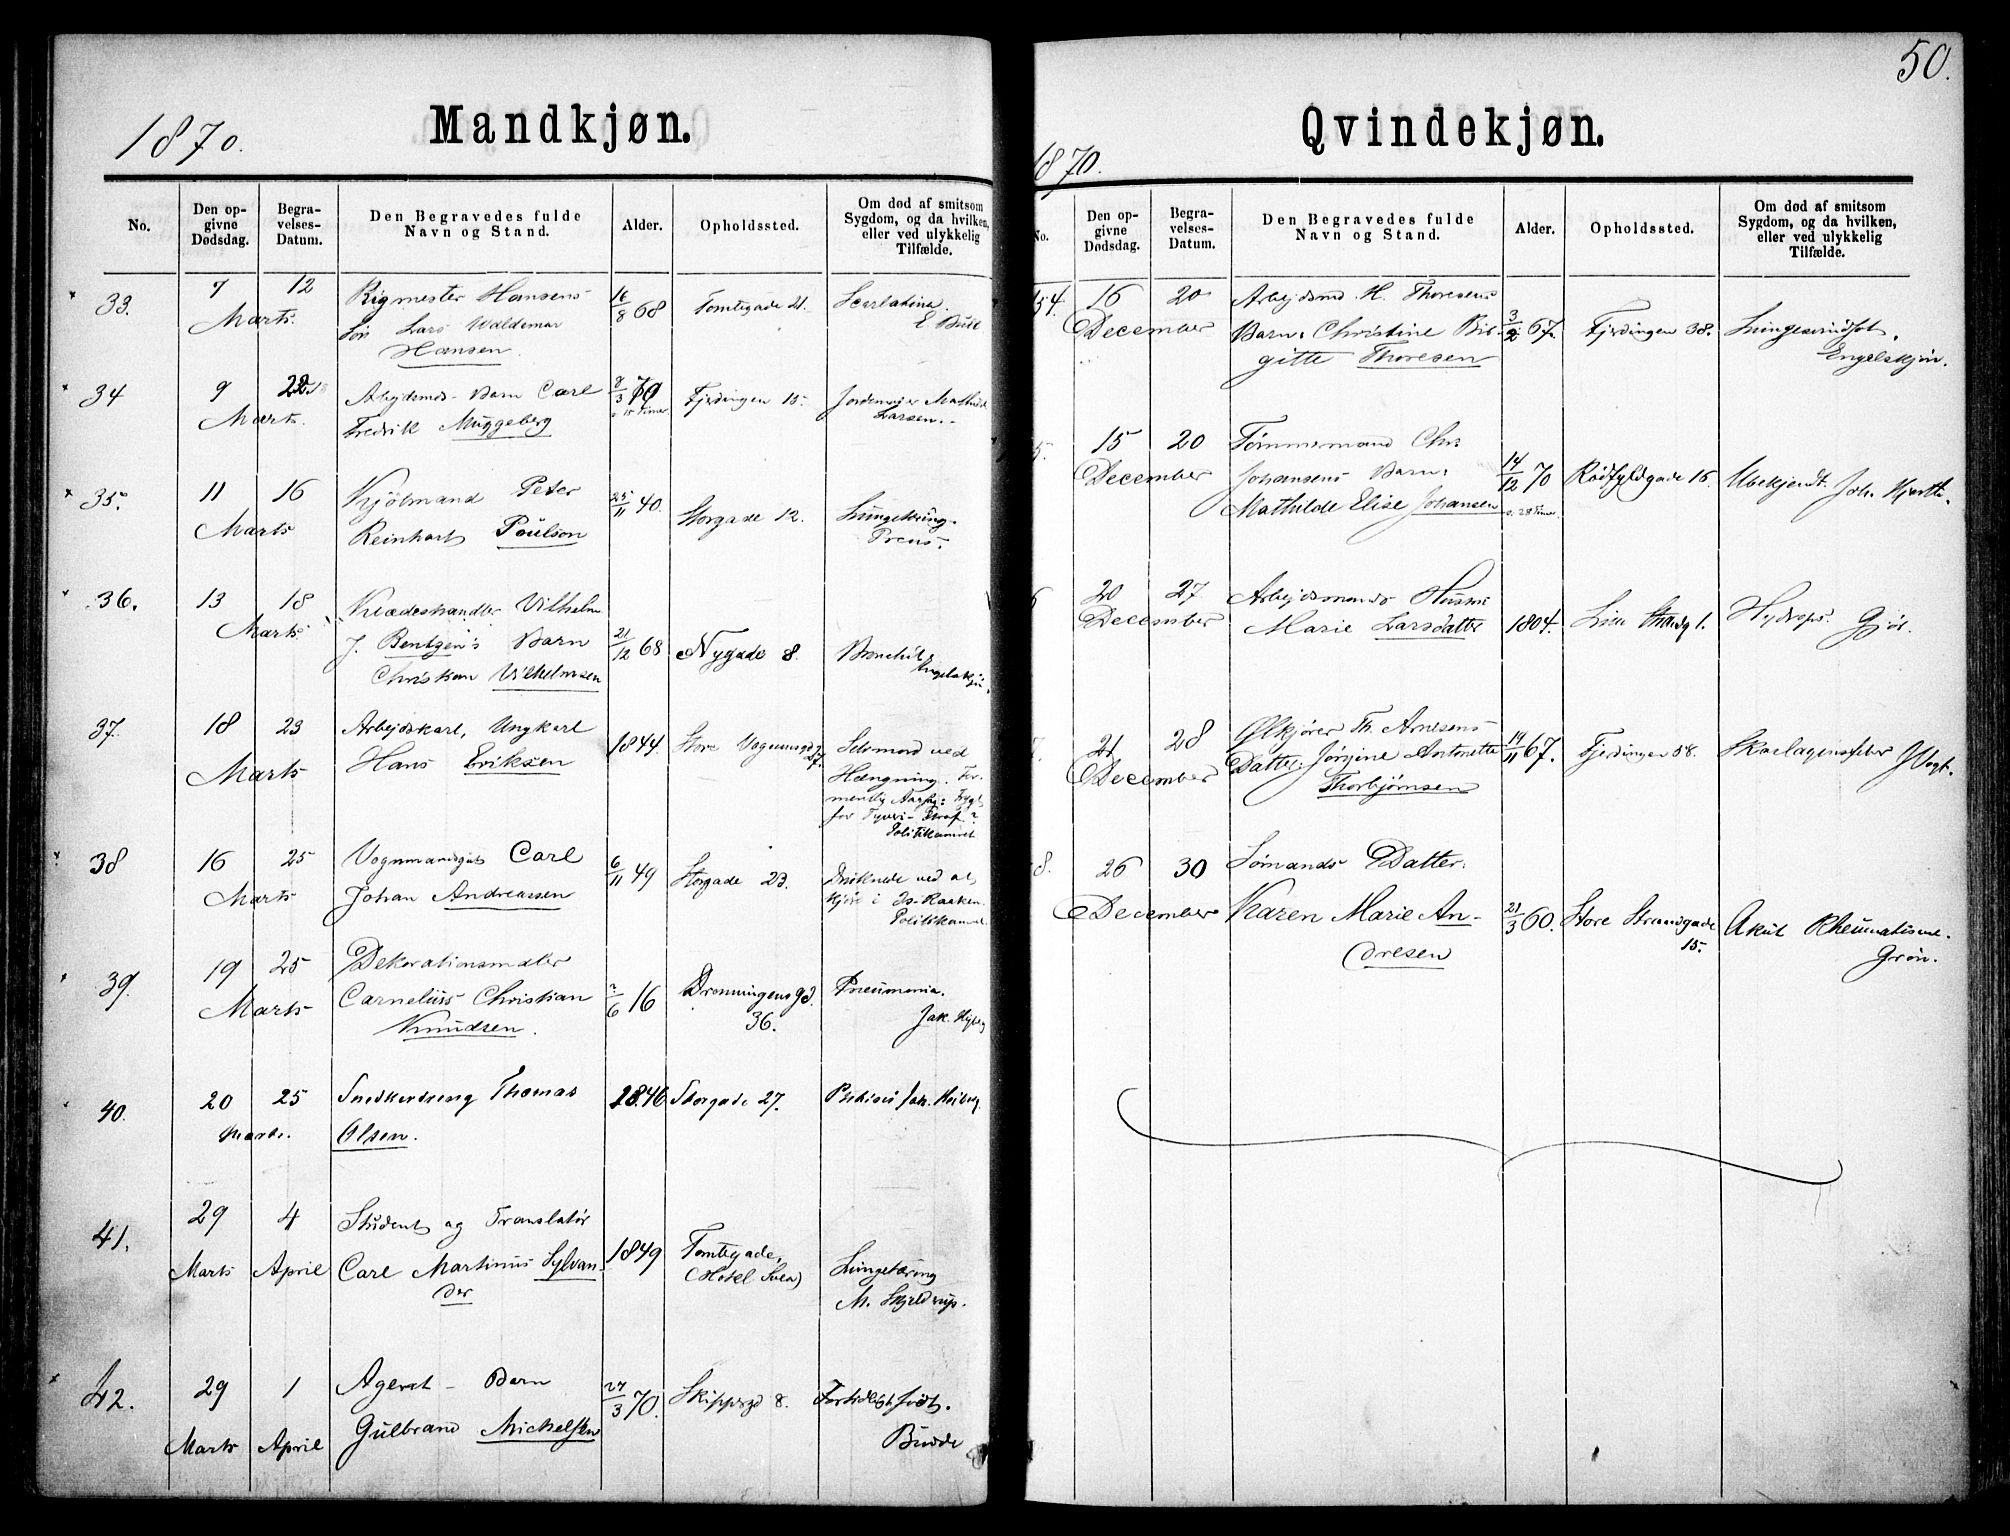 50.
1870.
Mandkjøn.
No.
Den op-
givne
Dødsdag.
Begra-
velses-
Datum.
Den Begravedes fulde
Navn og Stand.
Alder.
Opholdssted.
Om død af smitsom
Sygdom, og da hvilken,
eller ved ulykkelig
Tilfælde.
33. 7 12 Rigmester Hansens 16/8 68 Tomtegade 21. Scarlatina.
Marts. Søn Lars Waldemar E Bull
Hansen.
34 9 Arbejdsmds Barn Carl 8/3 70 Fjerdingen 15.
Marts. Fredrik Muggeberg 15 Timer. Larsen.
35. 11 16 Kjølmand Peter 25/11 40. Storgade 12. Lungetæring.
Marts Reinhart Poulson
36. 13 18 Klædeshandler Vilhelm
Marts J. Bentzen's Barn 21/12 68 Nygade 8.
Christian Vilhelmsen
37. 18 23 Arbejdskarl, Ungkarl 1844. Store Vognmgd 27. Selvmord ved
Marts Hans Eriksen Hængning. For-
mentlig Aarsag: Frygt
for Tyveri-Straf?
Politikamret
38 16 25 Vognmandsgut Carl 6/11 49 Storgade 23. Druknede ved at
Marts Johan Andreassen kjøre i Is-Raaken.
Politikamret
39. 19 25 Dekorationsmaler
Marts Cornelius Christian 2/6 16 Dronningensgd. Pneumonia.
Knudsen. 36.
40. 20 25 Snedkerdreng Thomas 1846 Storgade 27.
Marts. Olsen.
41. 29 4 Student og Translatør 1849 Tomtegade,
Marts April Carl Martinus Sylvan- (Hotel Svea) Lungetæring
der M. Skjelderup.
42. 29 1 Agent - Barn 27/3 70. Skippergd 8. Fortidligt født.
Marts April Gulbrand Michelsen Budde
1870.
Qvindekjøn.
No.
Den op-
givne
Dødsdag.
Begra-
velses-
Datum.
Den Begravedes fulde
Navn og Stand.
Alder.
Opholdssted.
Om død af smitsom
Sygdom, og da hvilken,
eller ved ulykkelig
Tilfælde.
54. 16 20 Arbejdsmd. H. Thoresens 3/2 67. Fjerdingen 38. Lungesvindsot.
December Barn: Christine Bir- Engelskjøn.
gitte Thoresen
5. 15 20 Tømmermand Chr.
December Johansens Barn: 14/12 70 Rødfyldgade 16. Ubekjendt.
Mathilde Elise Johansen 28 Timer.
6 20 27 Arbejdsmands Hustru
December Marie Larsdatter 1804. Lille Strandg 1. Hydrops. Gjør.
7. 21 28 Ølkjører Th. Arnesens
December Datter: Jørgine Antonette 19/11 67. Fjerdingen 58. Skarlagensfeber J Vogt.
Thorbjørnsen
8. 26 30 Sømands Datter:
December Karen Marie An- 21/3 60. Store Strandgade Akut Rheumatisme.
dresen 15. Grøn.